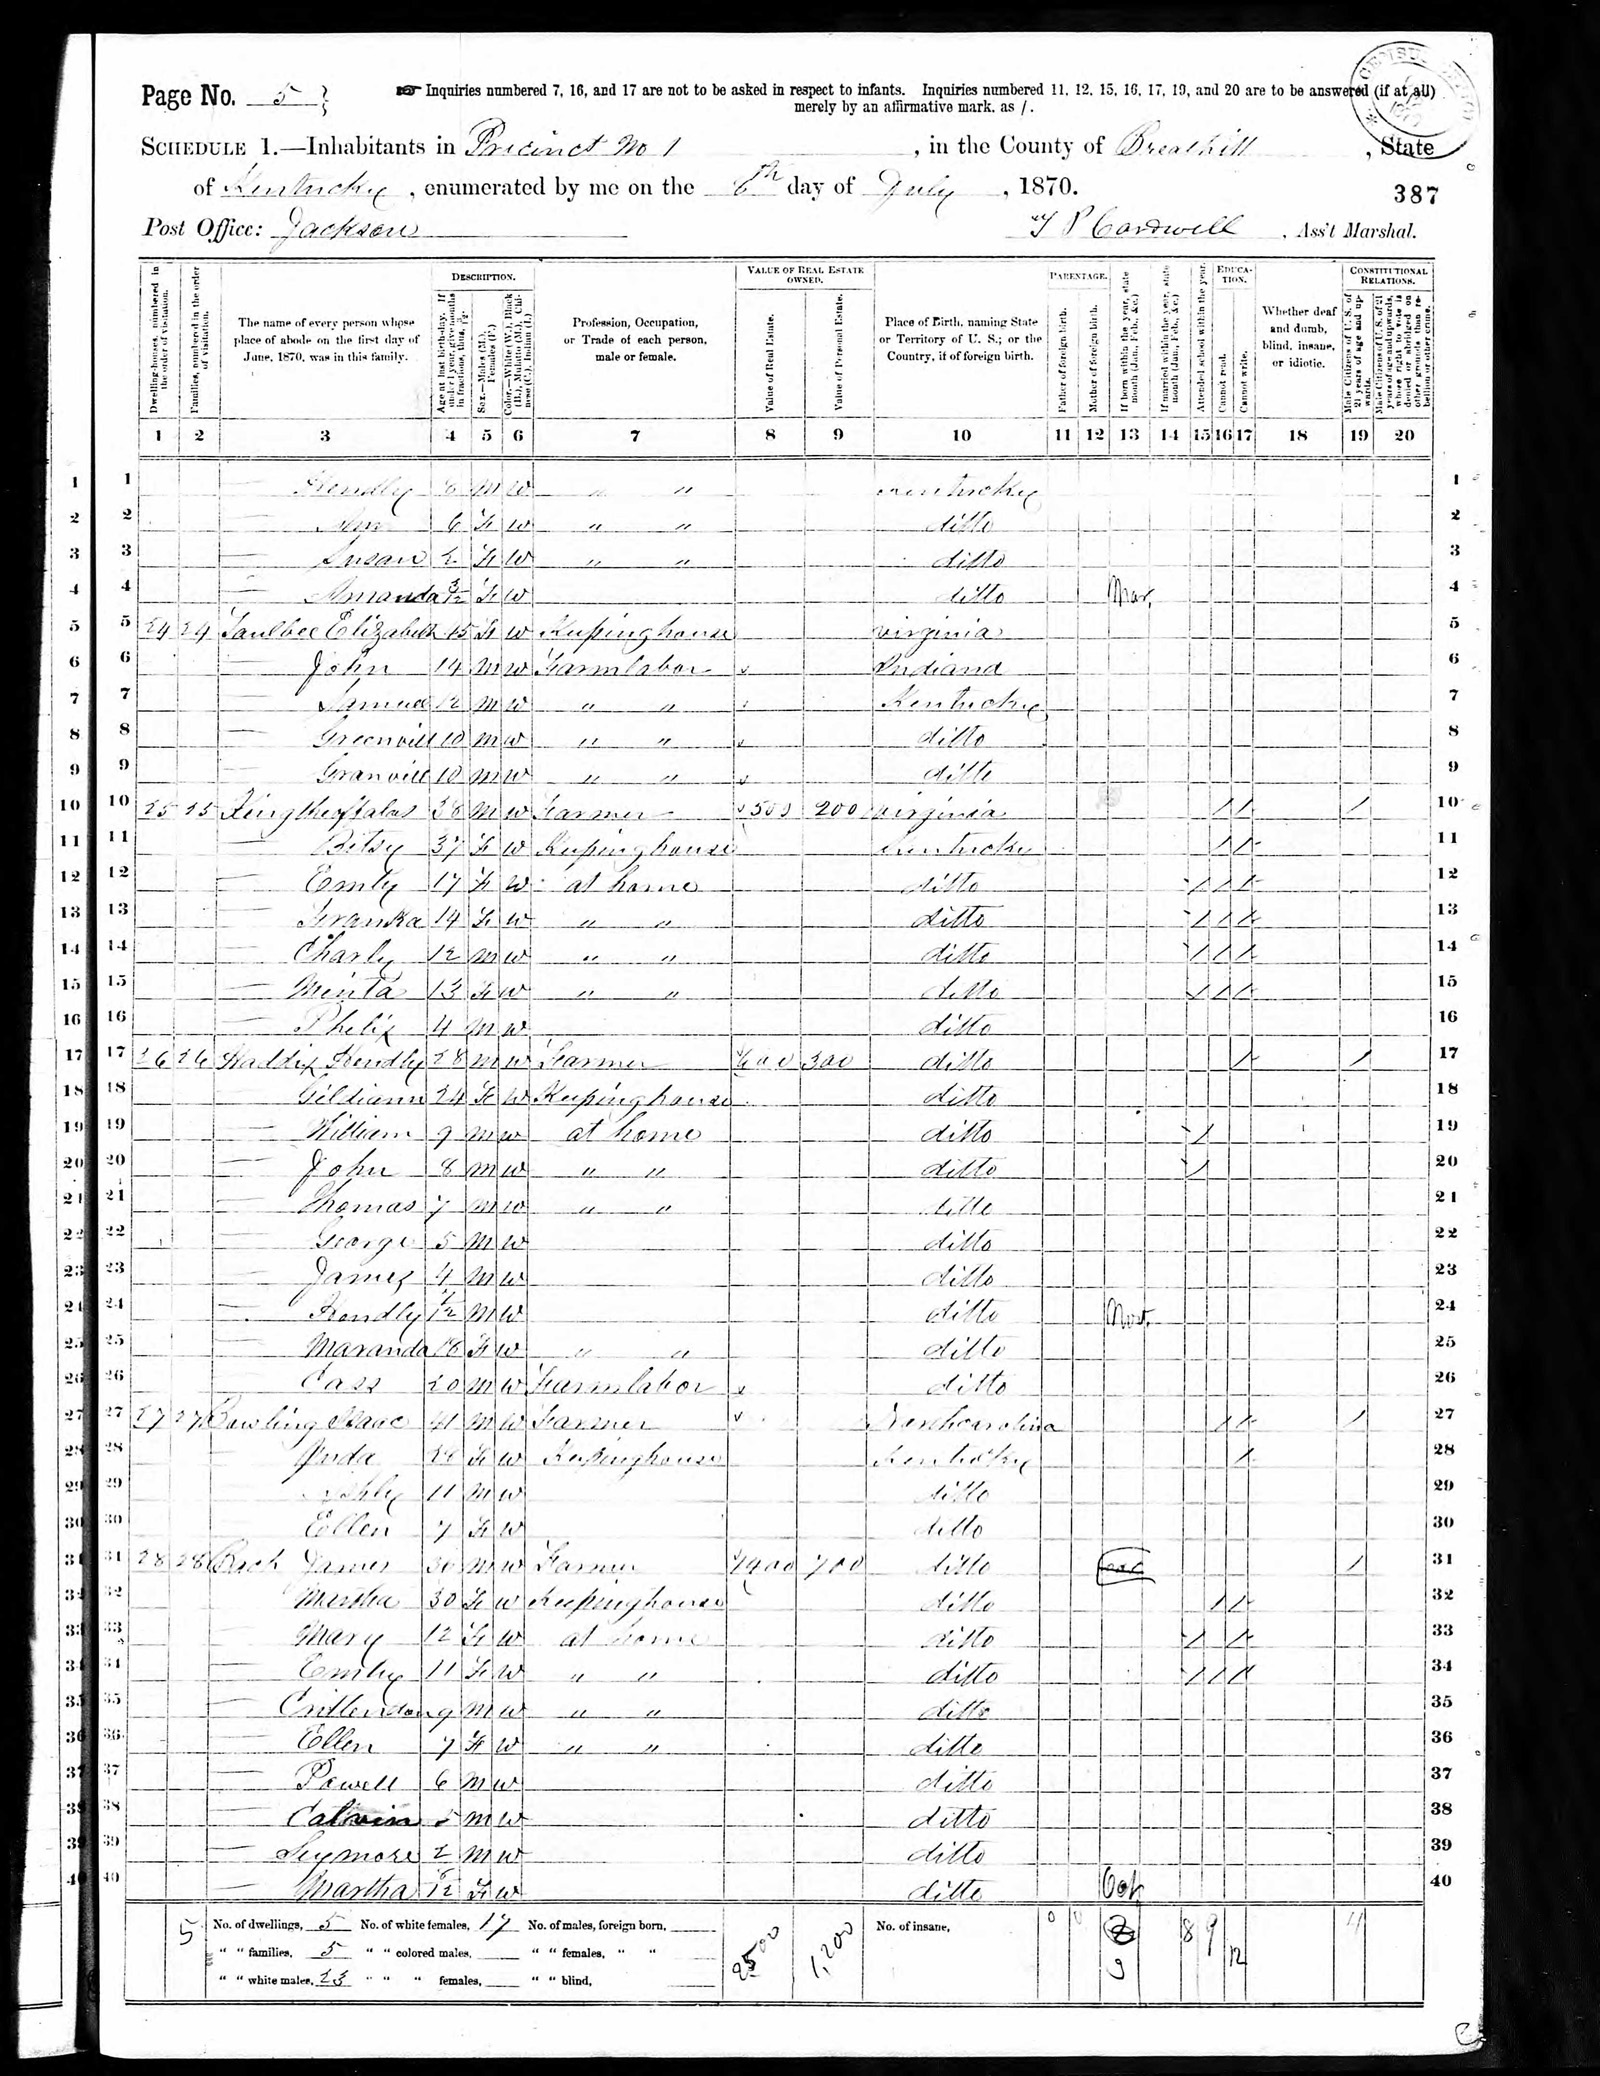 Page No. 5
Inquiries numbered 7, 16, and 17 are not to be asked in respect to infants. Inquiries numbered 11, 12, 15, 16, 17, 19, and 20 are to be answered (if at all)
merely by an affirmative mark, as /.
SCHEDULE 1.—Inhabitants in Precinct No 1, in the County of Breathitt, State
of Kentucky, enumerated by me on the 6th day of July, 1870.
387
Post Office: Jackson
P Cardwell, Ass't Marshal.
DESCRIPTION.
VALUE OF REAL ESTATE OWNED.
PARENTAGE.
EDUCATION.
CONSTITUTIONAL RELATIONS.
Dwelling-houses, numbered in the order of visitation.
Families, numbered in the order of visitation.
The name of every person whose place of abode on the first day of June, 1870, was in this family.
Age at last birth-day. If under 1 year, give months in fractions, thus, 3/12.
Sex.—Males (M.), Females (F.)
Color.—White (W.), Black (B.), Mulatto (M.), Chinese (C.), Indian (I.)
Profession, Occupation, or Trade of each person, male or female.
Value of Real Estate.
Value of Personal Estate.
Place of Birth, naming State or Territory of U. S.; or the Country, if of foreign birth.
Father of foreign birth.
Mother of foreign birth.
If born within the year, state month (Jan., Feb., &c.)
If married within the year, state month (Jan., Feb., &c.)
Attended school within the year.
Cannot read.
Cannot write.
Whether deaf and dumb, blind, insane, or idiotic.
Male Citizens of U. S. of 21 years of age and upwards.
Male Citizens of U. S. of 21 years of age and upwards, whose right to vote is denied or abridged on other grounds than rebellion or other crime.
1 2 3 4 5 6 7 8 9 10 11 12 13 14 15 16 17 18 19 20
1 — Hendly 8 M W " " Kentucky 1
2 — 6 F W " " ditto 2
3 — Susan 2 F W " " ditto 3
4 — Amanda 3/12 F W ditto Mar. 4
5 24 24 Taulbee Elizabeth 45 F W Kepinghouse virginia 5
6 — John 14 M W Farm labor Indiana 6
7 — Samuel 12 M W " " Kentucky 7
8 — Greenvill 10 M W " " ditto 8
9 — Granvill 10 M W " " ditto 9
10 25 25 King 38 M W Farmer 500 200 virginia / / / 10
11 — Bitsy 37 F W Kepinghouse Kentucky / / 11
12 — Emly 17 F W at home ditto / / / 12
13 — Franka 14 F W " " ditto / / / 13
14 — Charly 12 M W " " ditto / / / 14
15 — Minta 13 F W " " ditto / / / 15
16 — Phelix 4 M W ditto 16
17 26 26 Haddix Hendly 28 M W Farmer 600 300 ditto / / 17
18 — Gildiann 24 F W Kepinghouse ditto 18
19 — William 9 M W at home ditto / 19
20 — John 8 M W " " ditto / 20
21 — Thomas 7 M W " " ditto 21
22 — George 5 M W ditto 22
23 — James 4 M W ditto 23
24 — Hendly 1/12 M W ditto 24
25 — Maranda 18 F W " " ditto 25
26 — Cass 20 M W Farm labor ditto 26
27 27 27 Bowling Isaac 41 M W Farmer Northcarolina / / / 27
28 — Juda 28 F W Kepinghouse Kentucky / 28
29 — 11 M W ditto 29
30 — Ellen 7 F W ditto 30
31 28 28 Bach James 36 M W Farmer 1400 700 ditto / 31
32 — Martha 30 F W Kepinghouse ditto / / 32
33 — Mary 12 F W at home ditto / / 33
34 — Emly 11 F W " " ditto / / / 34
35 — Crittendon 9 M W " " ditto 35
36 — Ellen 7 F W " " ditto 36
37 — Powell 6 M W ditto 37
38 — Calvin 5 M W ditto 38
39 — Seymore 2 M W ditto 39
40 — Martha F W ditto Oct 40
5 No. of dwellings, 5 No. of white females, 17 No. of males, foreign born, 2500 1,200 No. of insane, 0 0 8 9 12 4
" " families, 5 " " colored males, " " females, " "
" " white males, 23 " " " females, " " blind,